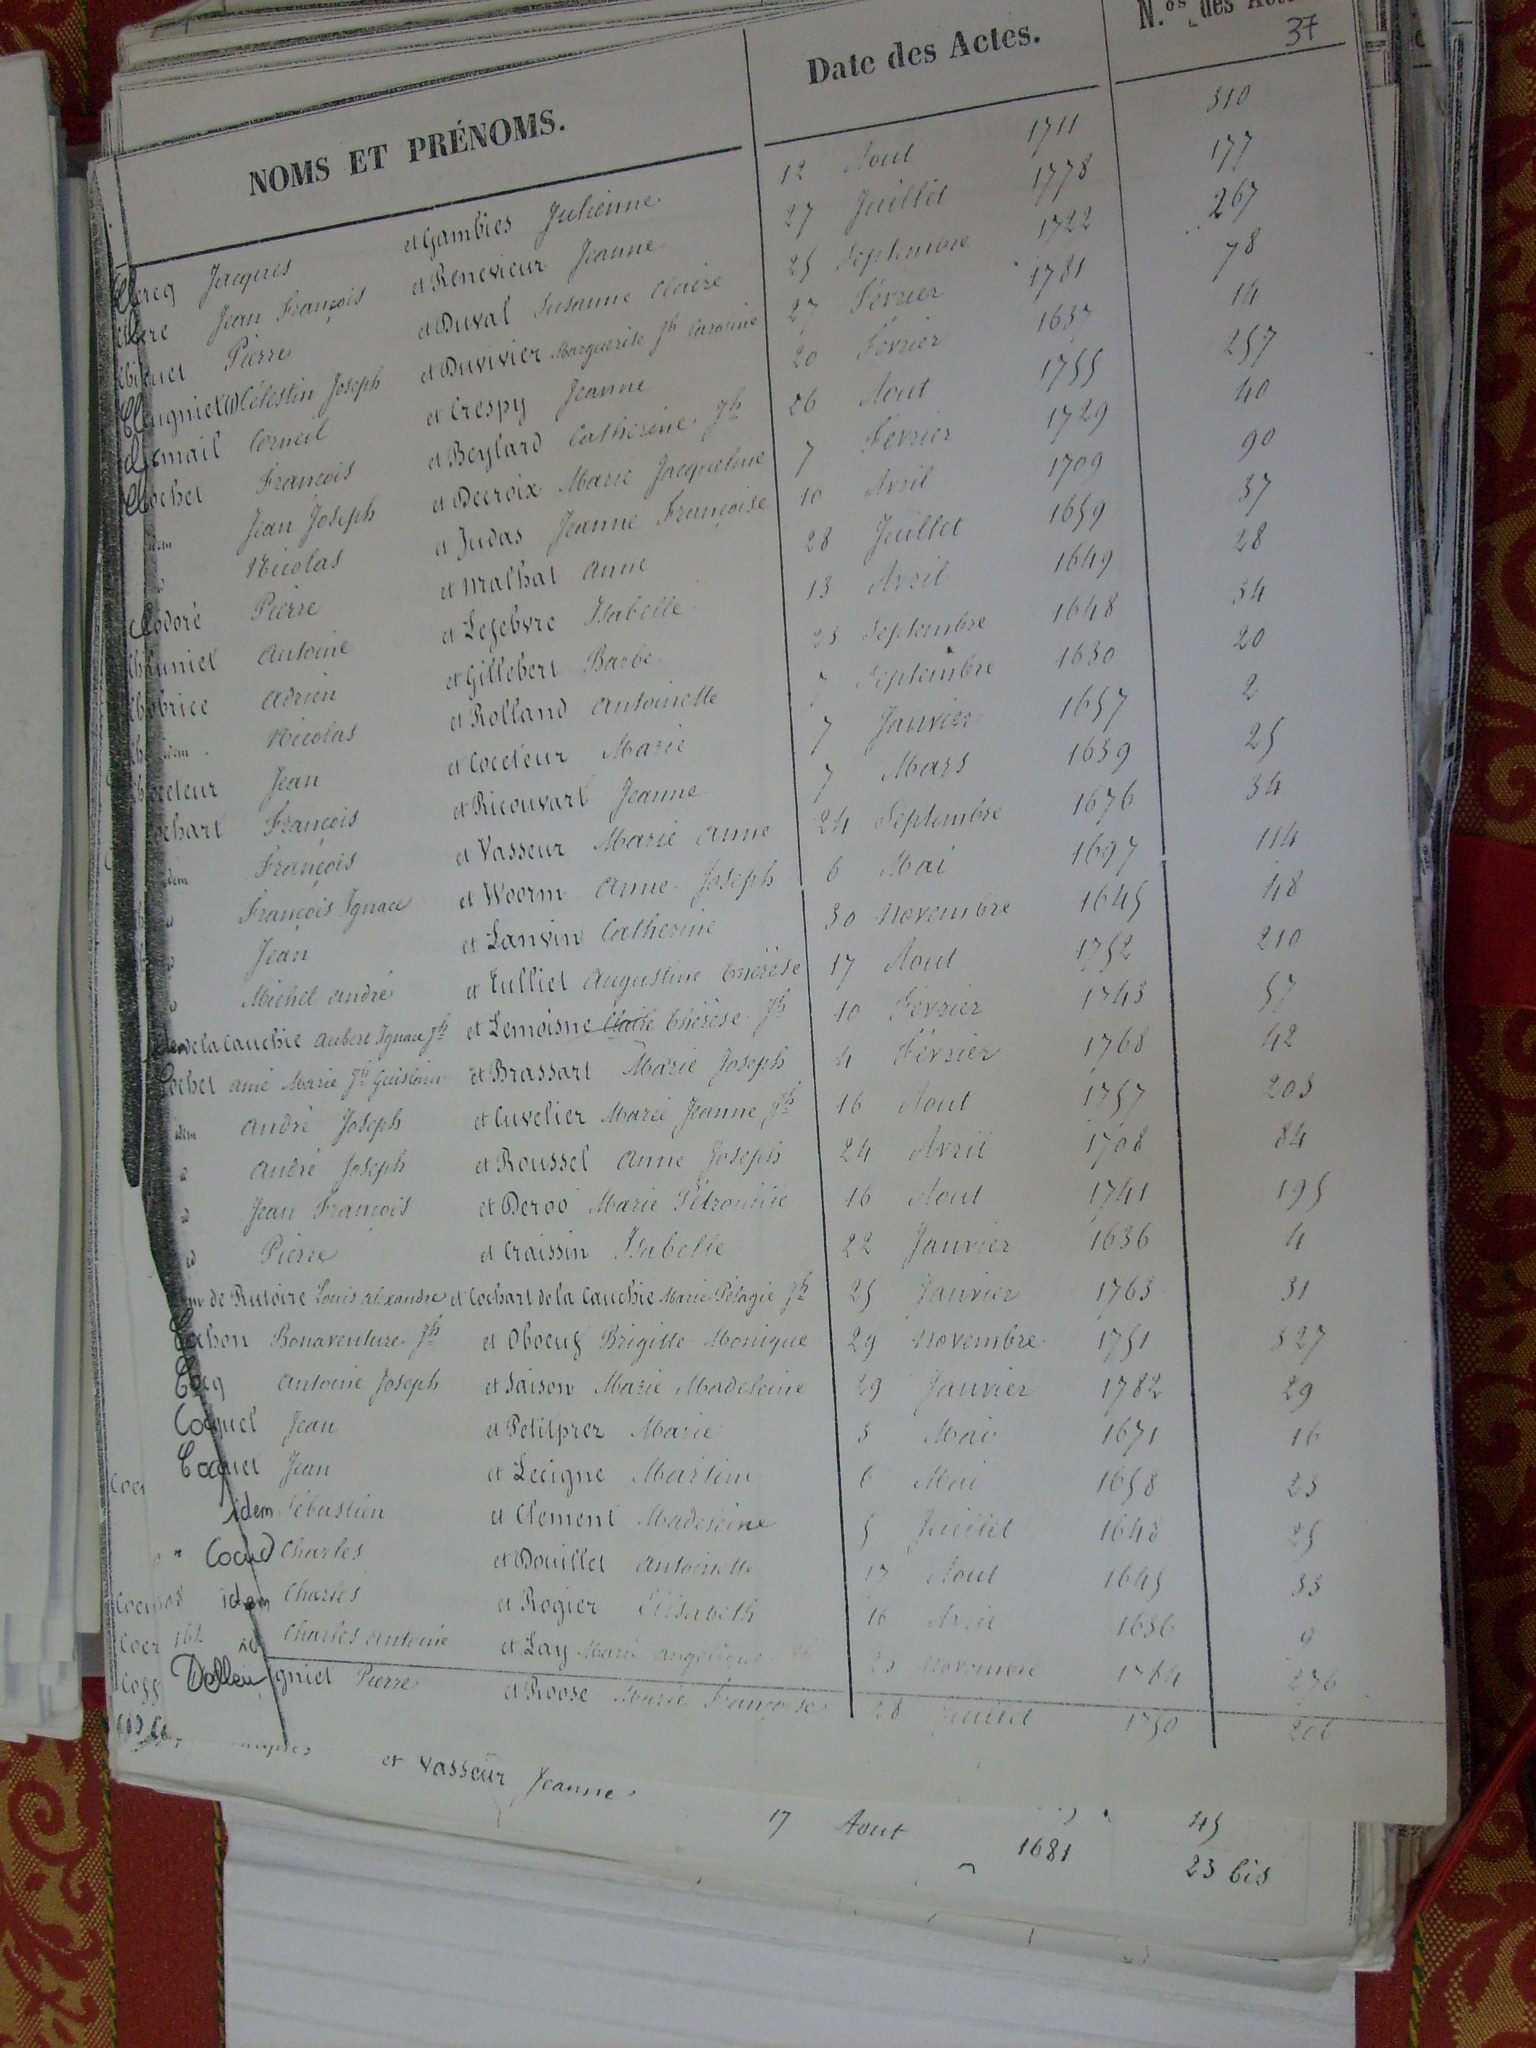 NOMS ET PRÉNOMS. Date des Actes. N.os des
37
Clercq Jacques et Gambies Julienne 12 Aout 1711 310
Jean François et Renevieur Jeanne 27 Juillet 1778 177
Pierre et Duval Susanne 25 Septembre 1722 267
Célestin Joseph et Duvivier Marguerite Jh Caroline 27 Février 1781 78
Corneil et Crespy Jeanne 20 Février 1637 14
Clochet François et Beylard Catherine Jh 26 Aout 1755 257
Jean Joseph et Decroix Marie Jacqueline 7 Février 1729 40
Nicolas et Judas Jeanne Françoise 10 Avril 1709 90
Pierre et Malhat Anne 28 Juillet 1659 37
Antoine et Lefebvre Isabelle 13 Avril 1649 28
Adrien et Gillebert Barbe 23 Septembre 1648 34
idem Nicolas et Rolland Antoinette 7 Septembre 1630 20
Jean et Cocteur Marie 7 Janvier 1657 2
François et Ricouvart Jeanne 7 Mars 1639 25
idem François et Vasseur Marie Anne 24 Septembre 1676 34
François Ignace et Woorm Anne Joseph 6 Mai 1697 114
Jean et Lanvin Catherine 30 Novembre 1645 48
Michel André et Tulliet Augustine Thérèse 17 Aout 1752 210
de la Cauchie Aubert Ignace Jh et Lemoisne Claire Thérèse Jh 10 Février 1743 57
Cochet Amé Marie Jh Guislain et Brassart Marie Joseph 4 Février 1768 42
idem André Joseph et Cuvelier Marie Jeanne Jh 16 Aout 1757 203
id André Joseph et Roussel Anne Joseph 24 Avril 1708 84
id Jean François et Deroo Marie Pétronille 16 Aout 1741 195
id Pierre et Craissin Isabelle 22 Janvier 1636 4
de Rutoire Louis Alexandre et Cochart de la Cauchie Marie Pélagie Jh 25 Janvier 1763 31
Bonaventure Jh et Oboeuf Brigitte Monique 29 Novembre 1751 327
Cocq Antoine Joseph et Saison Marie Madeleine 29 Janvier 1782 29
Coquel Jean et Petitprez Marie 3 Mai 1671 16
Coquel Jean et Lecigne Martine 6 Mai 1658 23
idem Sébastien et Clement Madeleine 5 Juillet 1648 25
Cocud Charles et Douillet Antoinette 17 Aout 1645 33
idem Charles et Rogier Elisabeth 16 Avril 1636 9
162 id Charles Antoine et Lay Marie Angélique 23 Novembre 1764 276
gniet Pierre et Roose Marie Françoise 28 Juillet 1750 206
et Vasseur Jeanne 45
17 Aout 1681 23 bis